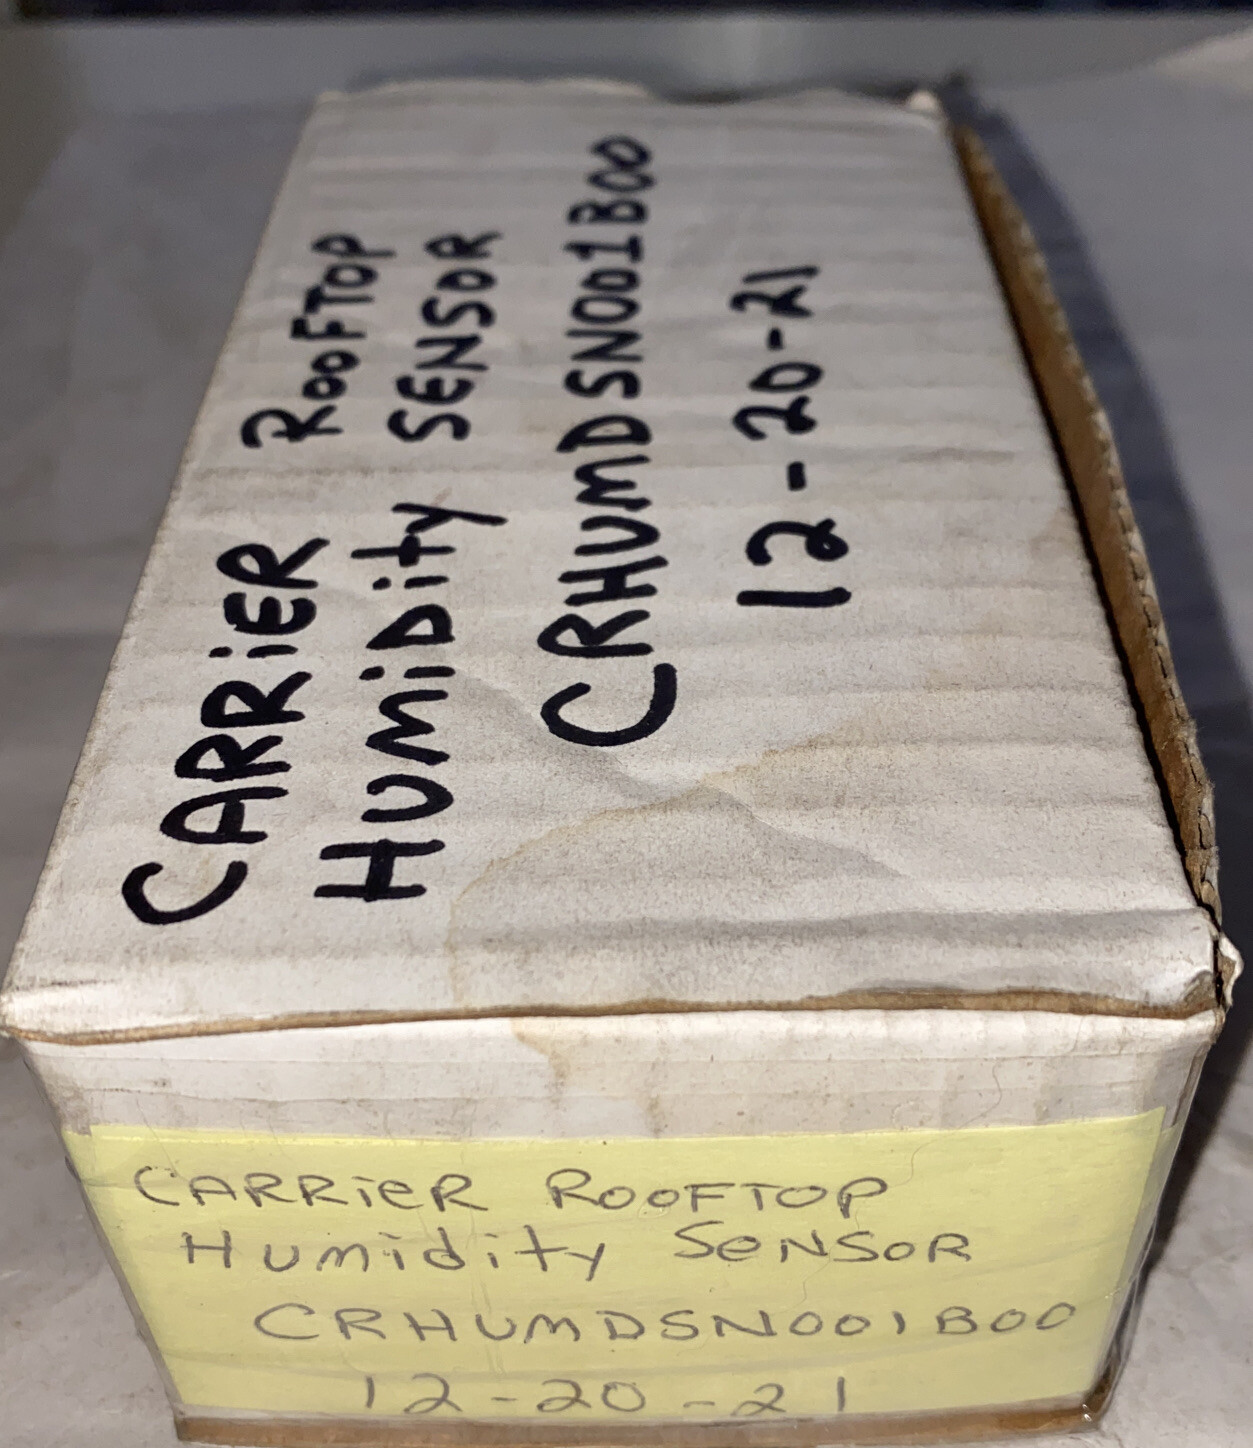 CARRiER ROOFTOP
HUMiDity SENSOR
CRHUMDSN001B00
12-20-21
CARRieR ROOFTOP
Humidity SeNSOR
CRHUMDSN001B00
12-20-21